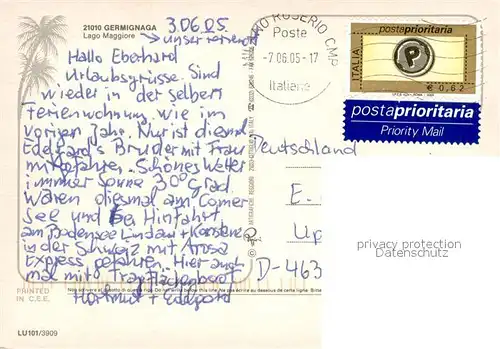 21010 GERMIGNAGA
Lago Maggiore
3.06.05
unser
Hallo Eberhard
Urlaubsgrüsse. Sind
wieder in der selben
Ferienwohnung wie im
vorigen Jahr. Nur ist diesmal
Edelgard's Bruder mit Frau
mitgefahren. Schönes Wetter
immer Sonne 30° Grad.
Waren diesmal am Comer
See und bei Hinfahrt
am Bodensee Lindau + Konstanz
in der Schweiz mit Arosa
Express gefahren. Hier auch
mal mit Tragflächenboot
Hartmut + Edelgard
PRINTED
IN C.E.E.
LU101/3909
ROSERIO CMP
Poste
-7.06.05-17
Italiane
postaprioritaria
ITALIA
P
€ 0,62
postaprioritaria
Priority Mail
Deutschland
E.
D-463
privacy protection
Datenschutz